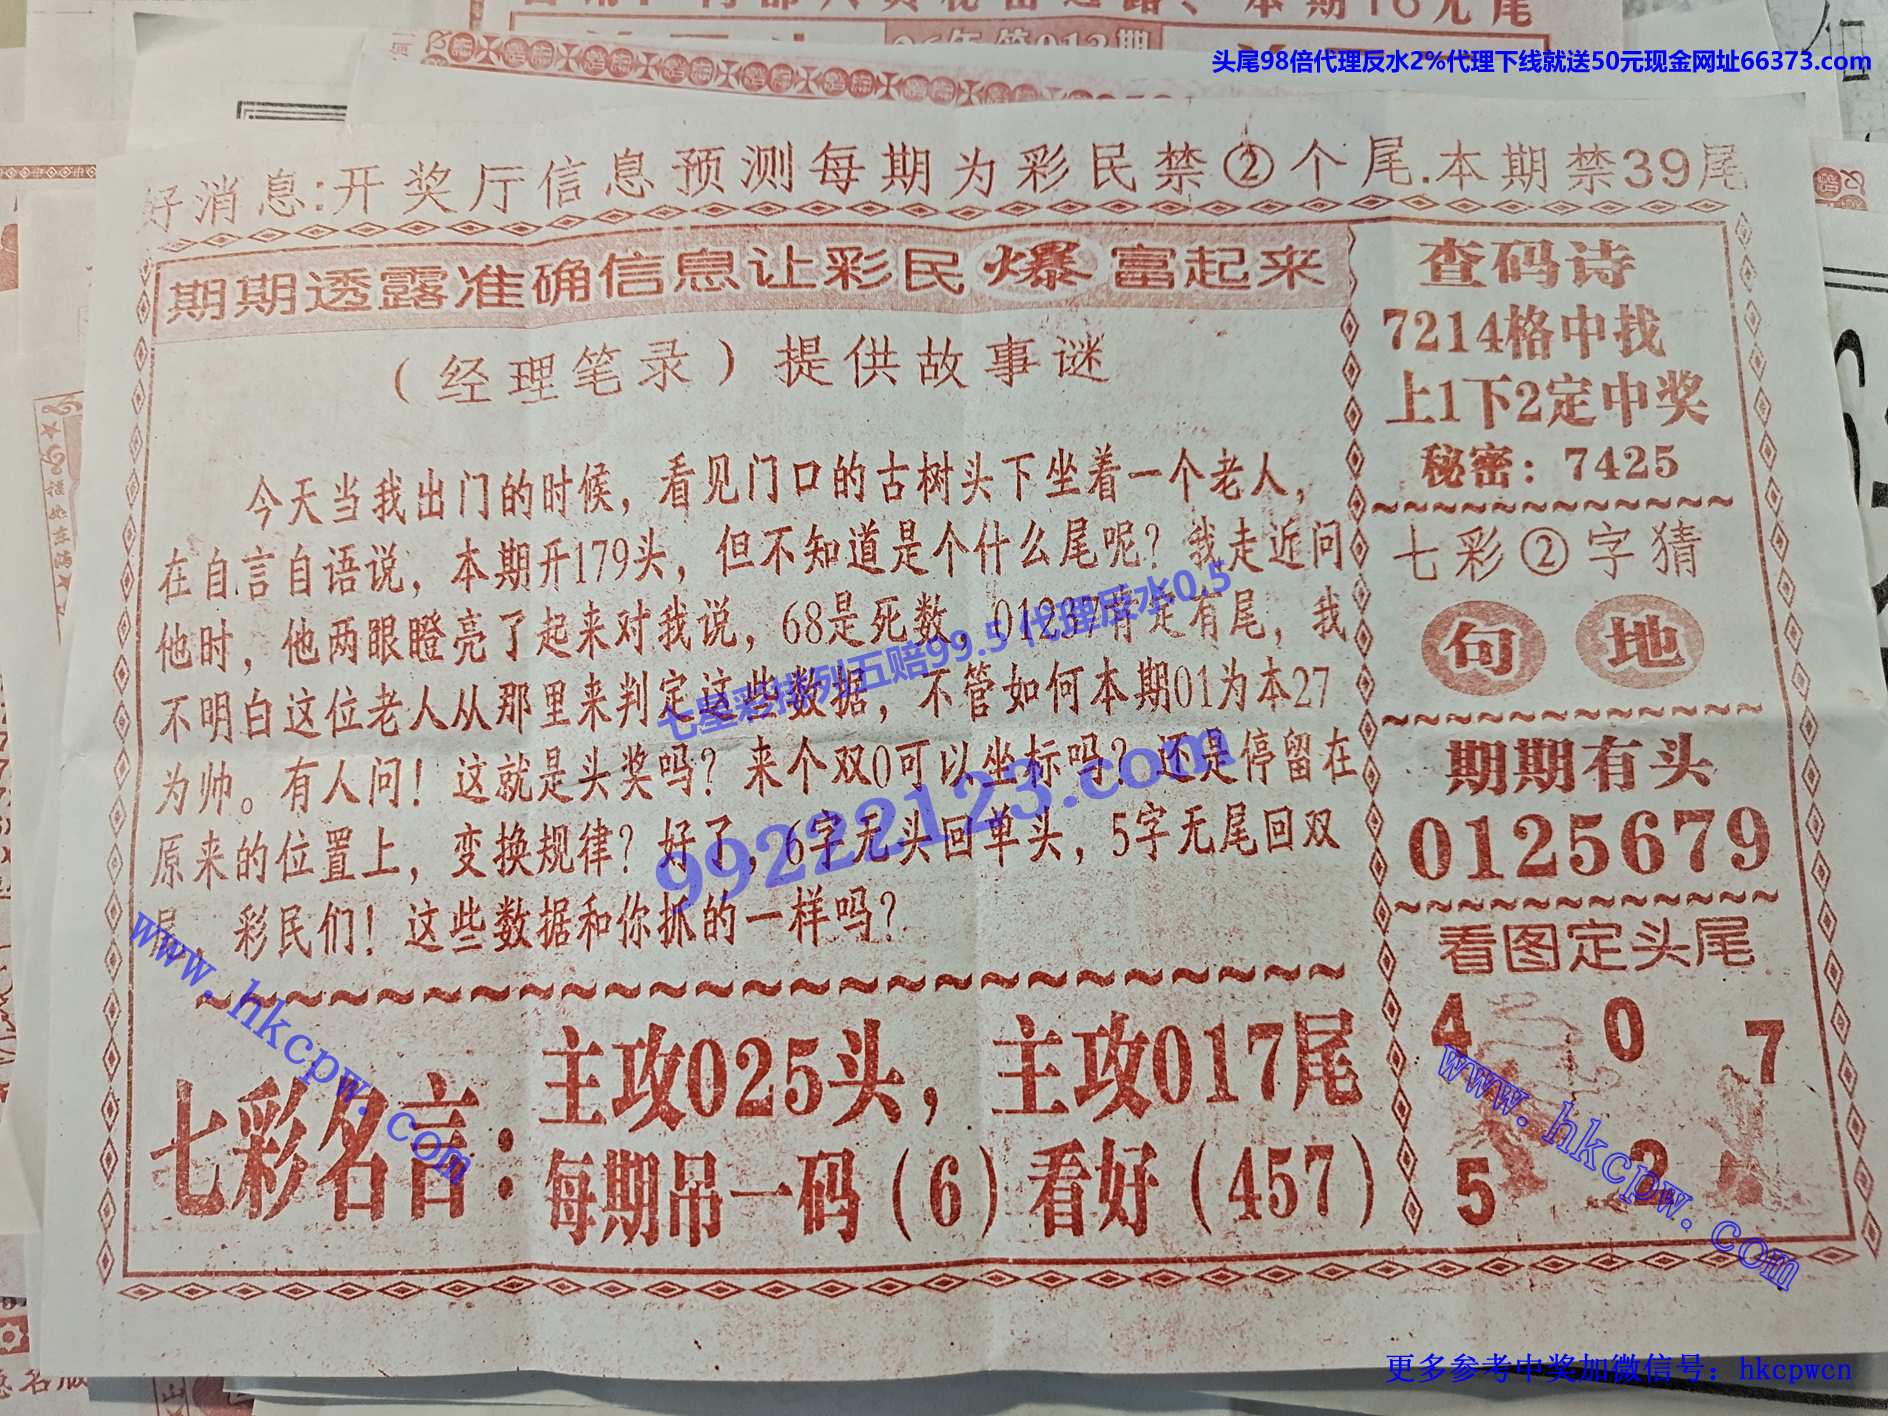 本期16元尾
06年第013期
头尾98倍代理反水2%代理下线就送50元现金网址66373.com
好消息:开奖厅信息预测每期为彩民禁②个尾.本期禁39尾
期期透露准确信息让彩民爆富起来
（经理笔录）提供故事谜
今天当我出门的时候，看见门口的古树头下坐着一个老人，
在自言自语说，本期开179头，但不知道是个什么尾呢？我走近问
他时，他两眼瞪亮了起来对我说，68是死数，01237肯定有尾，我
不明白这位老人从那里来判定这些数据，不管如何本期01为本27
为帅。有人问！这就是头奖吗？来个双0可以坐标吗？还是停留在
原来的位置上，变换规律？好了，6字无头回单头，5字无尾回双
尾，彩民们！这些数据和你抓的一样吗？
七彩名言：
主攻025头，主攻017尾
每期吊一码（6）看好（457）
查码诗
7214格中找
上1下2定中奖
秘密：7425
七彩②字猜
句 地
期期有头
0125679
看图定头尾
4 0 7
5 3
七星彩排列五赔99.5 代理反水0.5
99222123.com
www.hkcpw.com
www.hkcpw.com
更多参考中奖加微信号：hkcpwcn